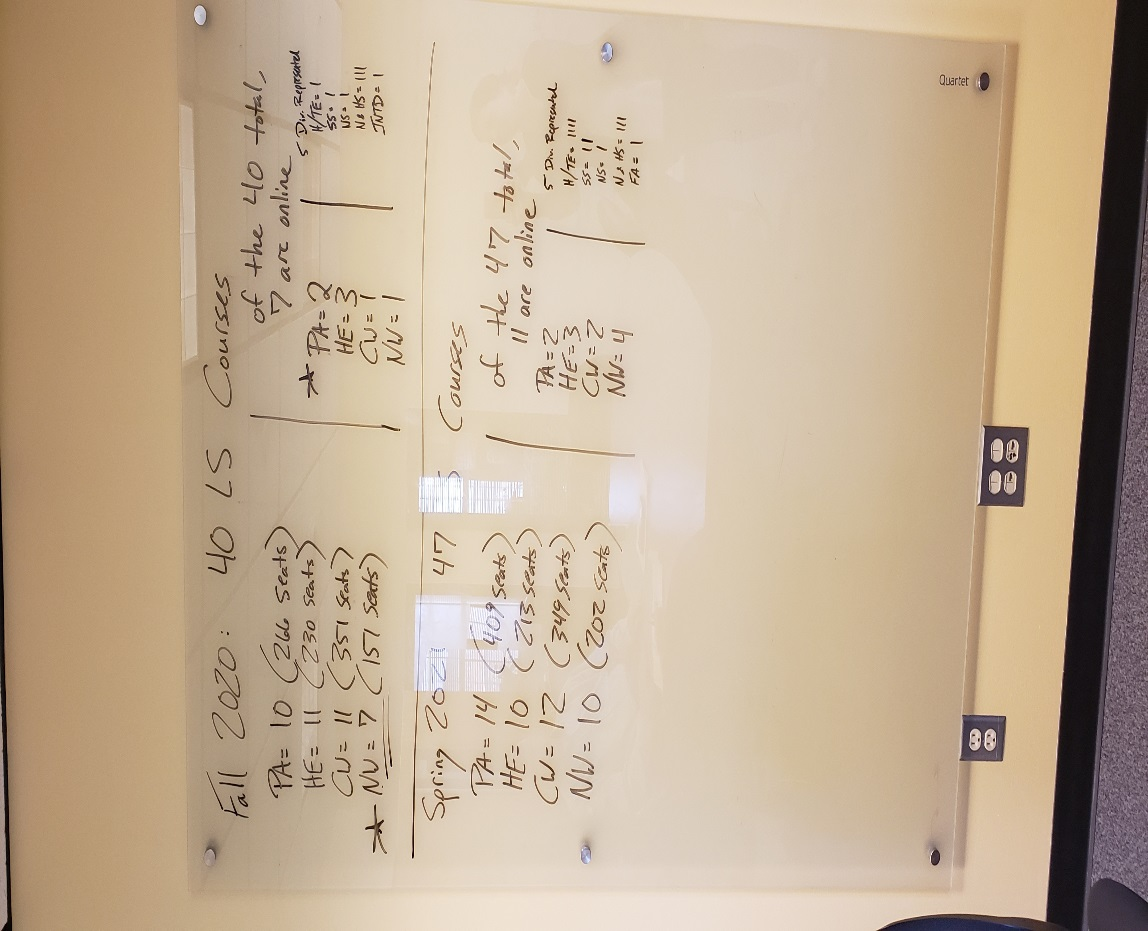 Fall 2020: 40 LS Courses
PA = 10 (266 seats)
HE = 11 (230 seats)
CW = 11 (351 seats)
★ NW = 7 (151 seats)
of the 40 total,
7 are online
★ PA = 2
HE = 3
CW = 1
NW = 1
5 Div. Represented
H/TE = 1
SS = 1
NS = 1
N&HS = 111
INTD = 1
Spring 2021 47 Courses
PA = 14 (409 seats)
HE = 10 (213 seats)
CW = 12 (349 seats)
NW = 10 (202 seats)
of the 47 total,
11 are online
PA = 2
HE = 3
CW = 2
NW = 4
5 Div. Represented
H/TE = 1111
SS = 11
NS = 1
N&HS = 111
FA = 1
Quartet